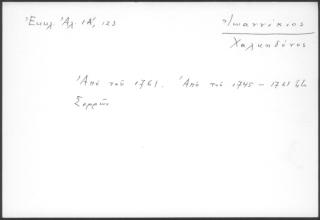 Ἐκκλ. Ἀλ. ΙΑ', 123
Ἰωαννίκιος
Χαλκηδόνος
Ἀπὸ τοῦ 1761. Ἀπὸ 1745 - 1761
Σερρῶν